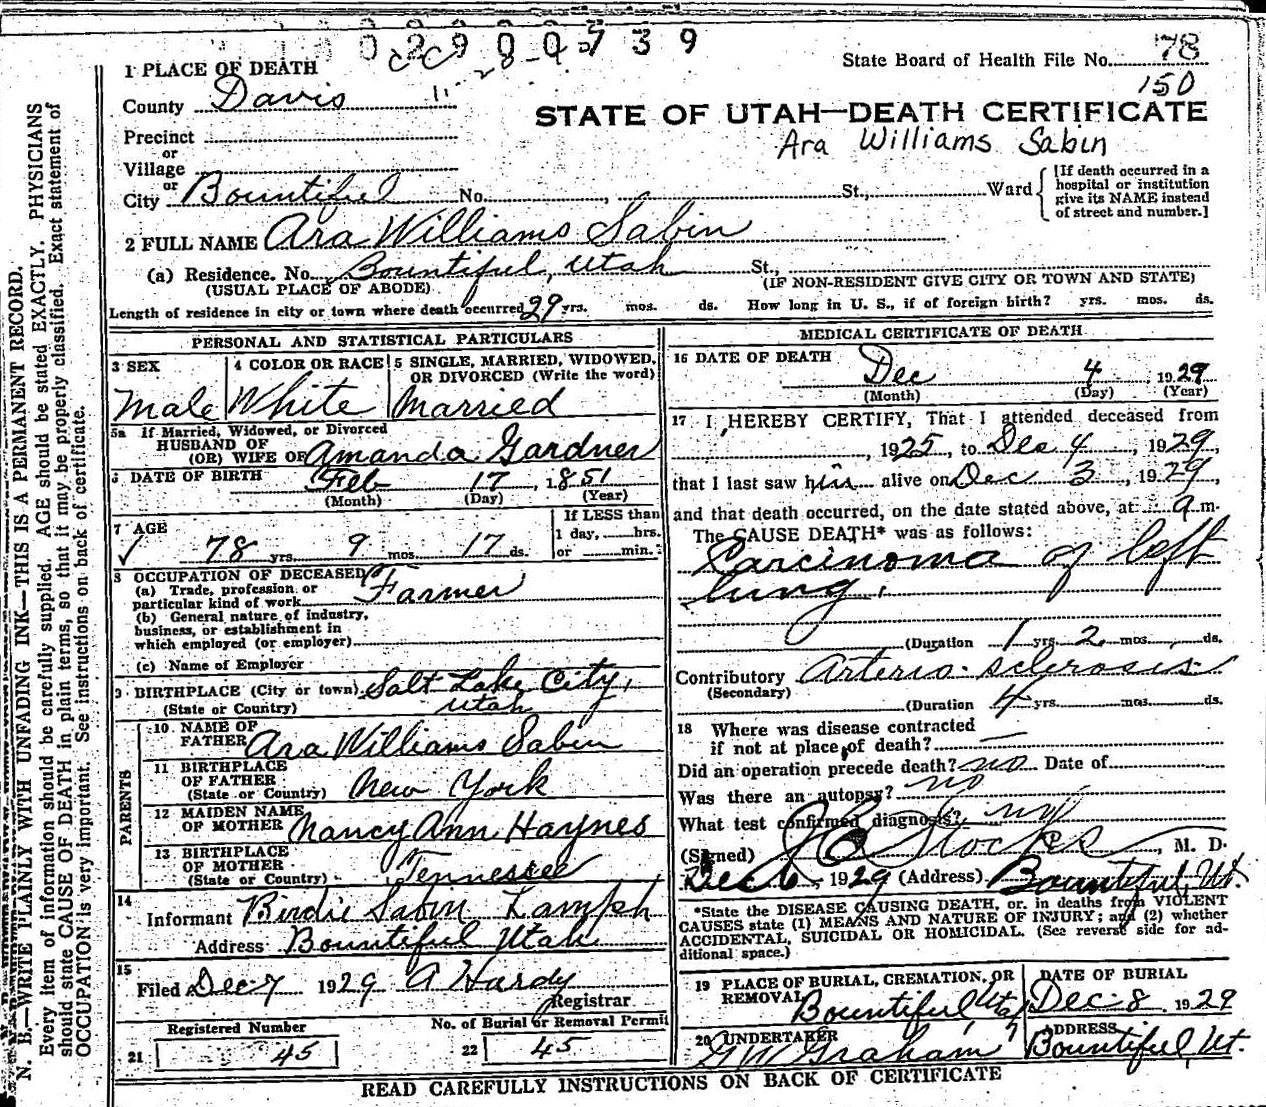 0 2 9 0 0 7 3 9
State Board of Health File No. 78
150
1 PLACE OF DEATH
County Davis
STATE OF UTAH—DEATH CERTIFICATE
Ara Williams Sabin
Precinct
or
Village
or
City Bountiful No. , St., Ward
[If death occurred in a hospital or institution give its NAME instead of street and number.]
2 FULL NAME Ara Williams Sabin
(a) Residence. No. Bountiful, Utah St.,
(USUAL PLACE OF ABODE) (IF NON-RESIDENT GIVE CITY OR TOWN AND STATE)
Length of residence in city or town where death occurred 29 yrs. mos. ds. How long in U. S., if of foreign birth? yrs. mos. ds.
PERSONAL AND STATISTICAL PARTICULARS
3 SEX Male
4 COLOR OR RACE White
5 SINGLE, MARRIED, WIDOWED, OR DIVORCED (Write the word) Married
5a If Married, Widowed, or Divorced
HUSBAND OF
(OR) WIFE OF Amanda Gardner
6 DATE OF BIRTH Feb 17, 1851
(Month) (Day) (Year)
7 AGE
78 yrs. 9 mos. 17 ds.
If LESS than
1 day, hrs.
or min.
8 OCCUPATION OF DECEASED
(a) Trade, profession or
particular kind of work Farmer
(b) General nature of industry,
business, or establishment in
which employed (or employer)
(c) Name of Employer
9 BIRTHPLACE (City or town) Salt Lake City,
(State or Country) Utah
PARENTS
10 NAME OF
FATHER Ara Williams Sabin
11 BIRTHPLACE
OF FATHER
(State or Country) New York
12 MAIDEN NAME
OF MOTHER Nancy Ann Haynes
13 BIRTHPLACE
OF MOTHER
(State or Country) Tennessee
14
Informant Birdie Sabin Lamph
Address Bountiful Utah
15
Filed Dec 7 1929 A Hardy
Registrar
Registered Number
21 45
No. of Burial or Removal Permit
22 45
MEDICAL CERTIFICATE OF DEATH
16 DATE OF DEATH
Dec 4, 1929
(Month) (Day) (Year)
17 I HEREBY CERTIFY, That I attended deceased from
, 1925, to Dec 4, 1929,
that I last saw him alive on Dec 3, 1929,
and that death occurred, on the date stated above, at a m.
The CAUSE DEATH* was as follows:
Carcinoma of left
lung.
(Duration 1 yrs. 2 mos. ds.
Contributory Arterio-sclerosis
(Secondary)
(Duration 4 yrs. mos. ds.
18 Where was disease contracted
if not at place of death?
Did an operation precede death? no Date of
Was there an autopsy? no
What test confirmed diagnosis?
(Signed) Stocks, M. D.
Dec 6, 1929 (Address) Bountiful, Ut.
*State the DISEASE CAUSING DEATH, or, in deaths from VIOLENT
CAUSES state (1) MEANS AND NATURE OF INJURY; and (2) whether
ACCIDENTAL, SUICIDAL OR HOMICIDAL. (See reverse side for ad-
ditional space.)
19 PLACE OF BURIAL, CREMATION, OR
REMOVAL Bountiful Uta
DATE OF BURIAL
Dec 8 1929
20 UNDERTAKER
GW Graham
ADDRESS
Bountiful, Ut.
READ CAREFULLY INSTRUCTIONS ON BACK OF CERTIFICATE
N. B.—WRITE PLAINLY WITH UNFADING INK—THIS IS A PERMANENT RECORD.
Every item of information should be carefully supplied. AGE should be stated EXACTLY. PHYSICIANS
should state CAUSE OF DEATH in plain terms, so that it may be properly classified. Exact statement of
OCCUPATION is very important. See instructions on back of certificate.